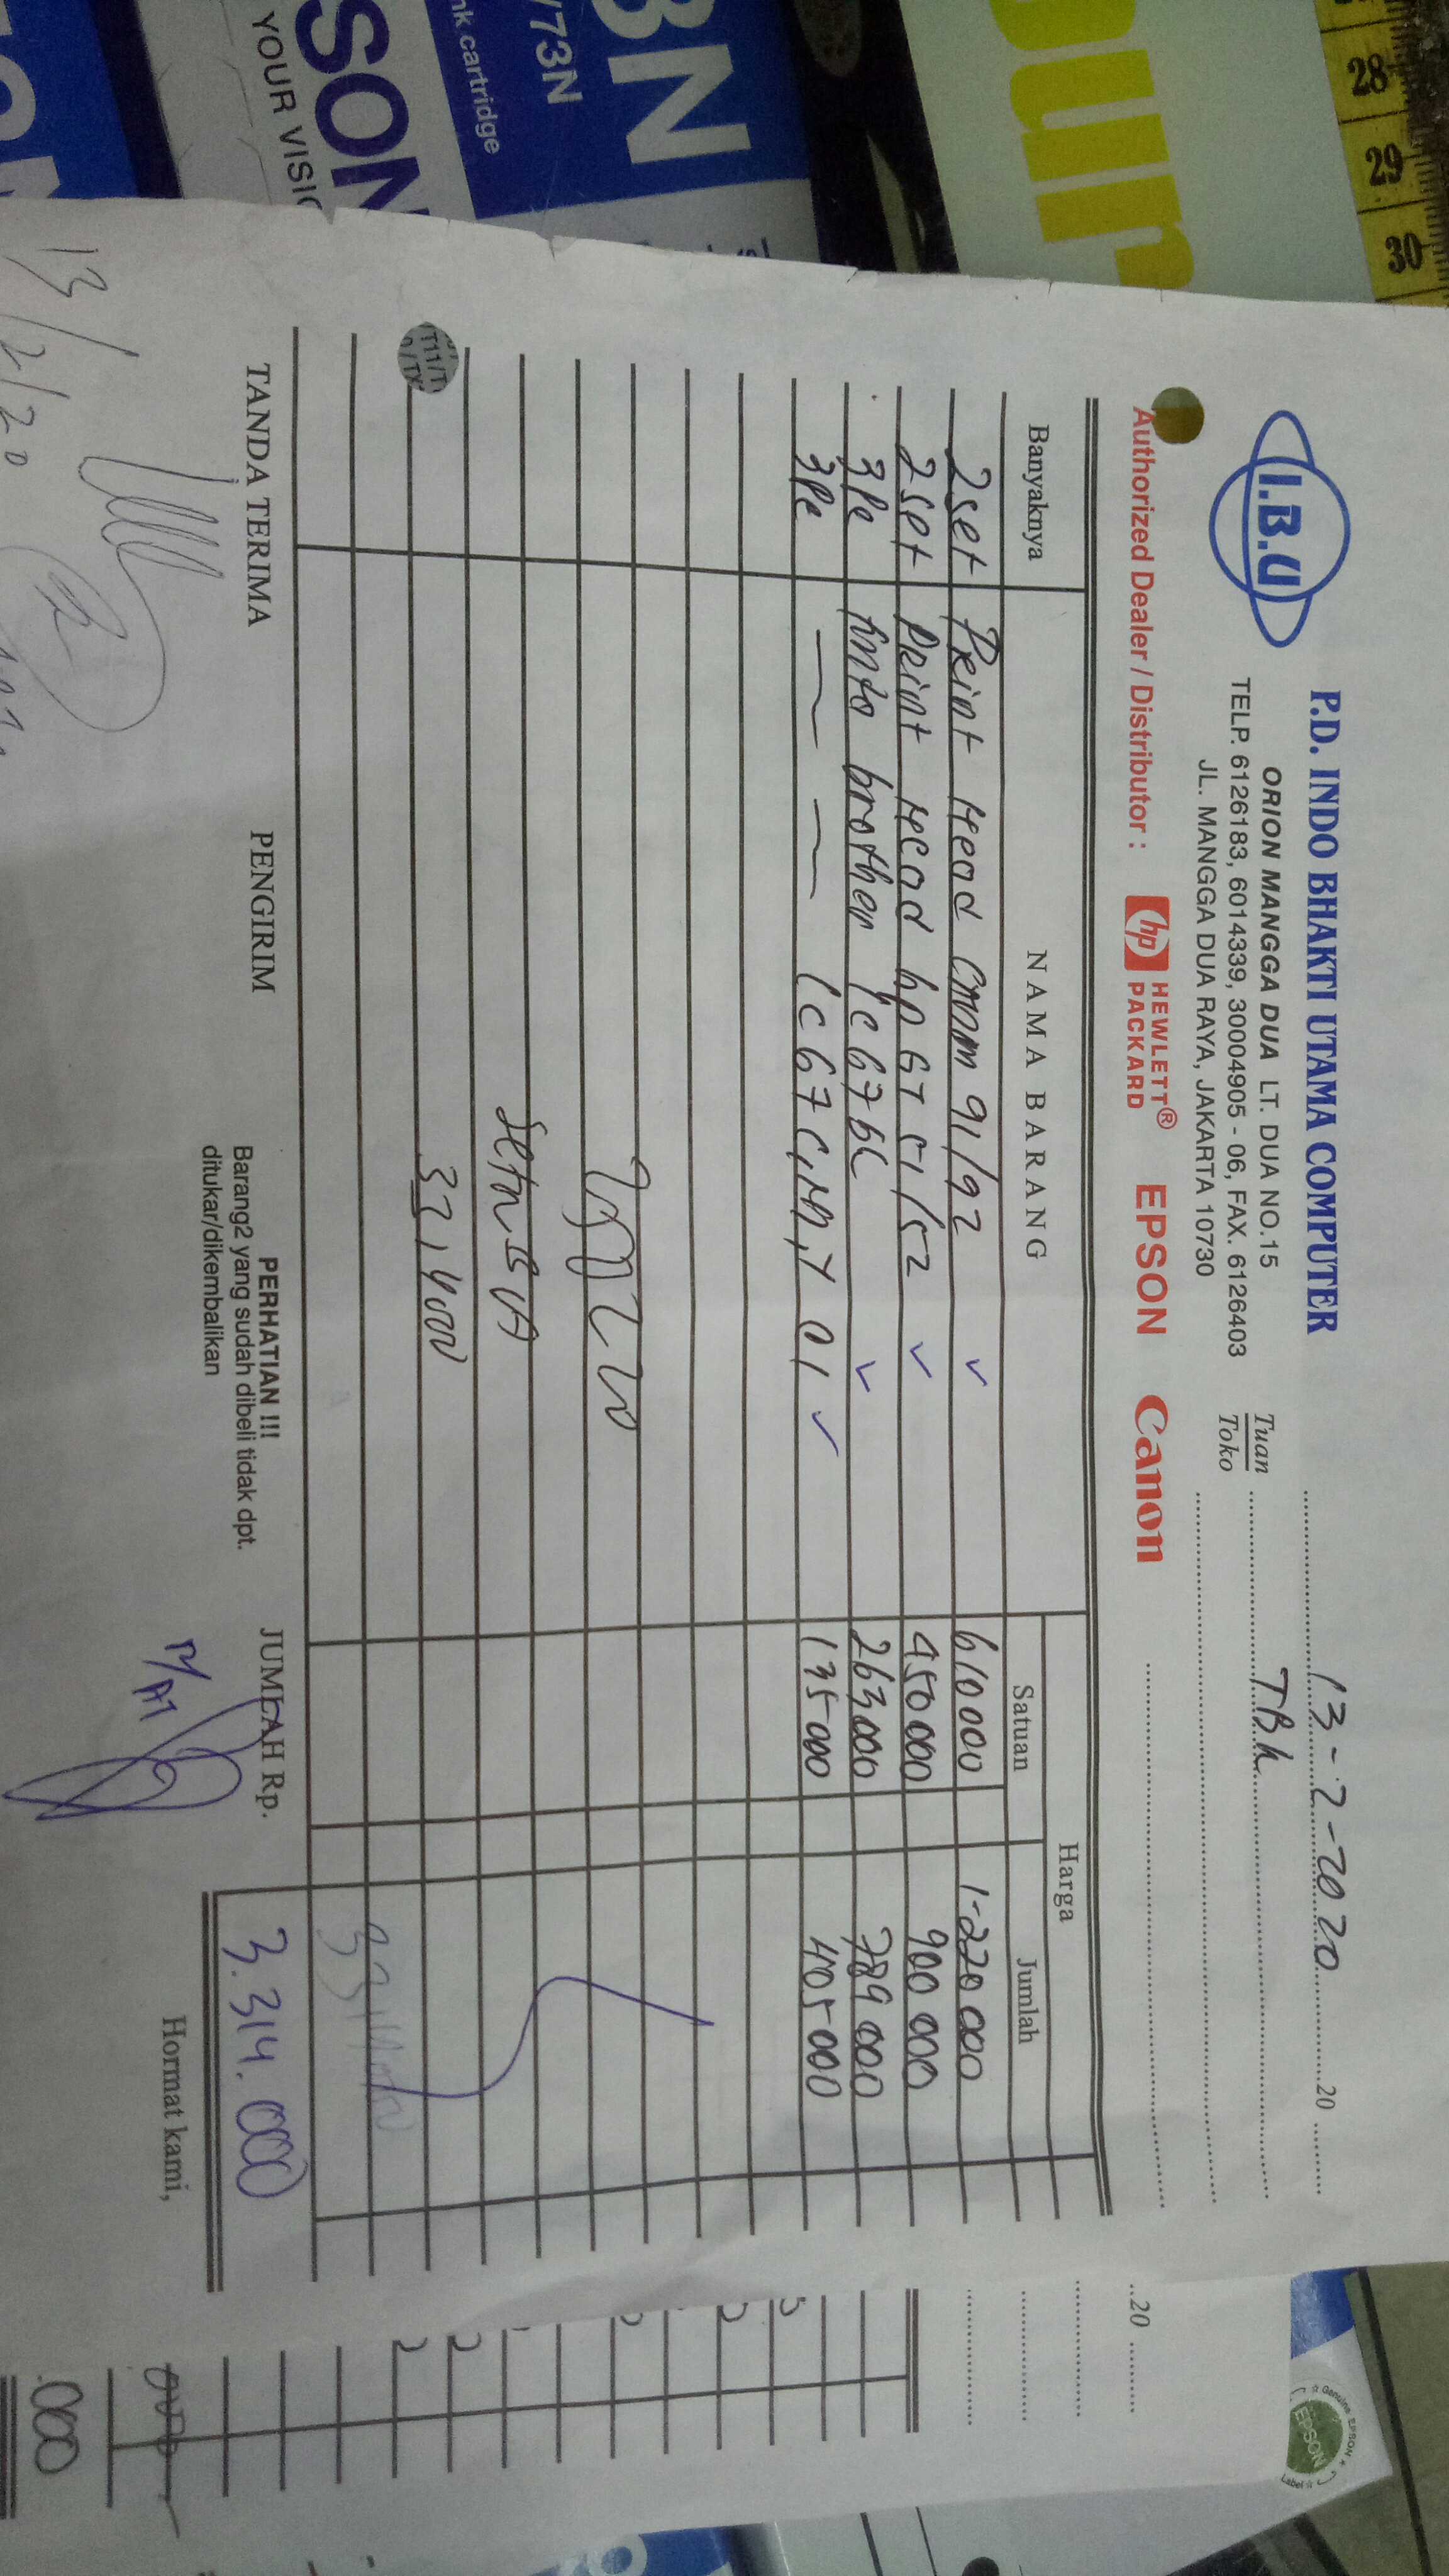 P.D. INDO BHAKTI UTAMA COMPUTER
I.B.U
ORION MANGGA DUA LT. DUA NO.15
TELP. 6126183, 6014339, 30004905 - 06, FAX. 6126403
JL. MANGGA DUA RAYA, JAKARTA 10730
13-2-2020 20
Tuan TBK
Toko
Authorized Dealer / Distributor : hp HEWLETT® PACKARD EPSON Canon
Banyaknya NAMA BARANG Harga
Satuan Jumlah
2set Print Head 91/92 610000 1-220 000
2set Print Head hp GT 51/52 450 000 900 000
3Pc tinta brother 263000 789 000
3Pc — — LC67 C,M,Y 01 135 000 405 000
TANDA TERIMA PENGIRIM JUMLAH Rp. 3.314.000
PERHATIAN !!!
Barang2 yang sudah dibeli tidak dpt.
ditukar/dikembalikan
Hormat kami,
13/2/20
20
.000
SON
YOUR VISIO
/73N
nk cartridge
3N
28
29
30
Genuine EPSON
EPSON
Label